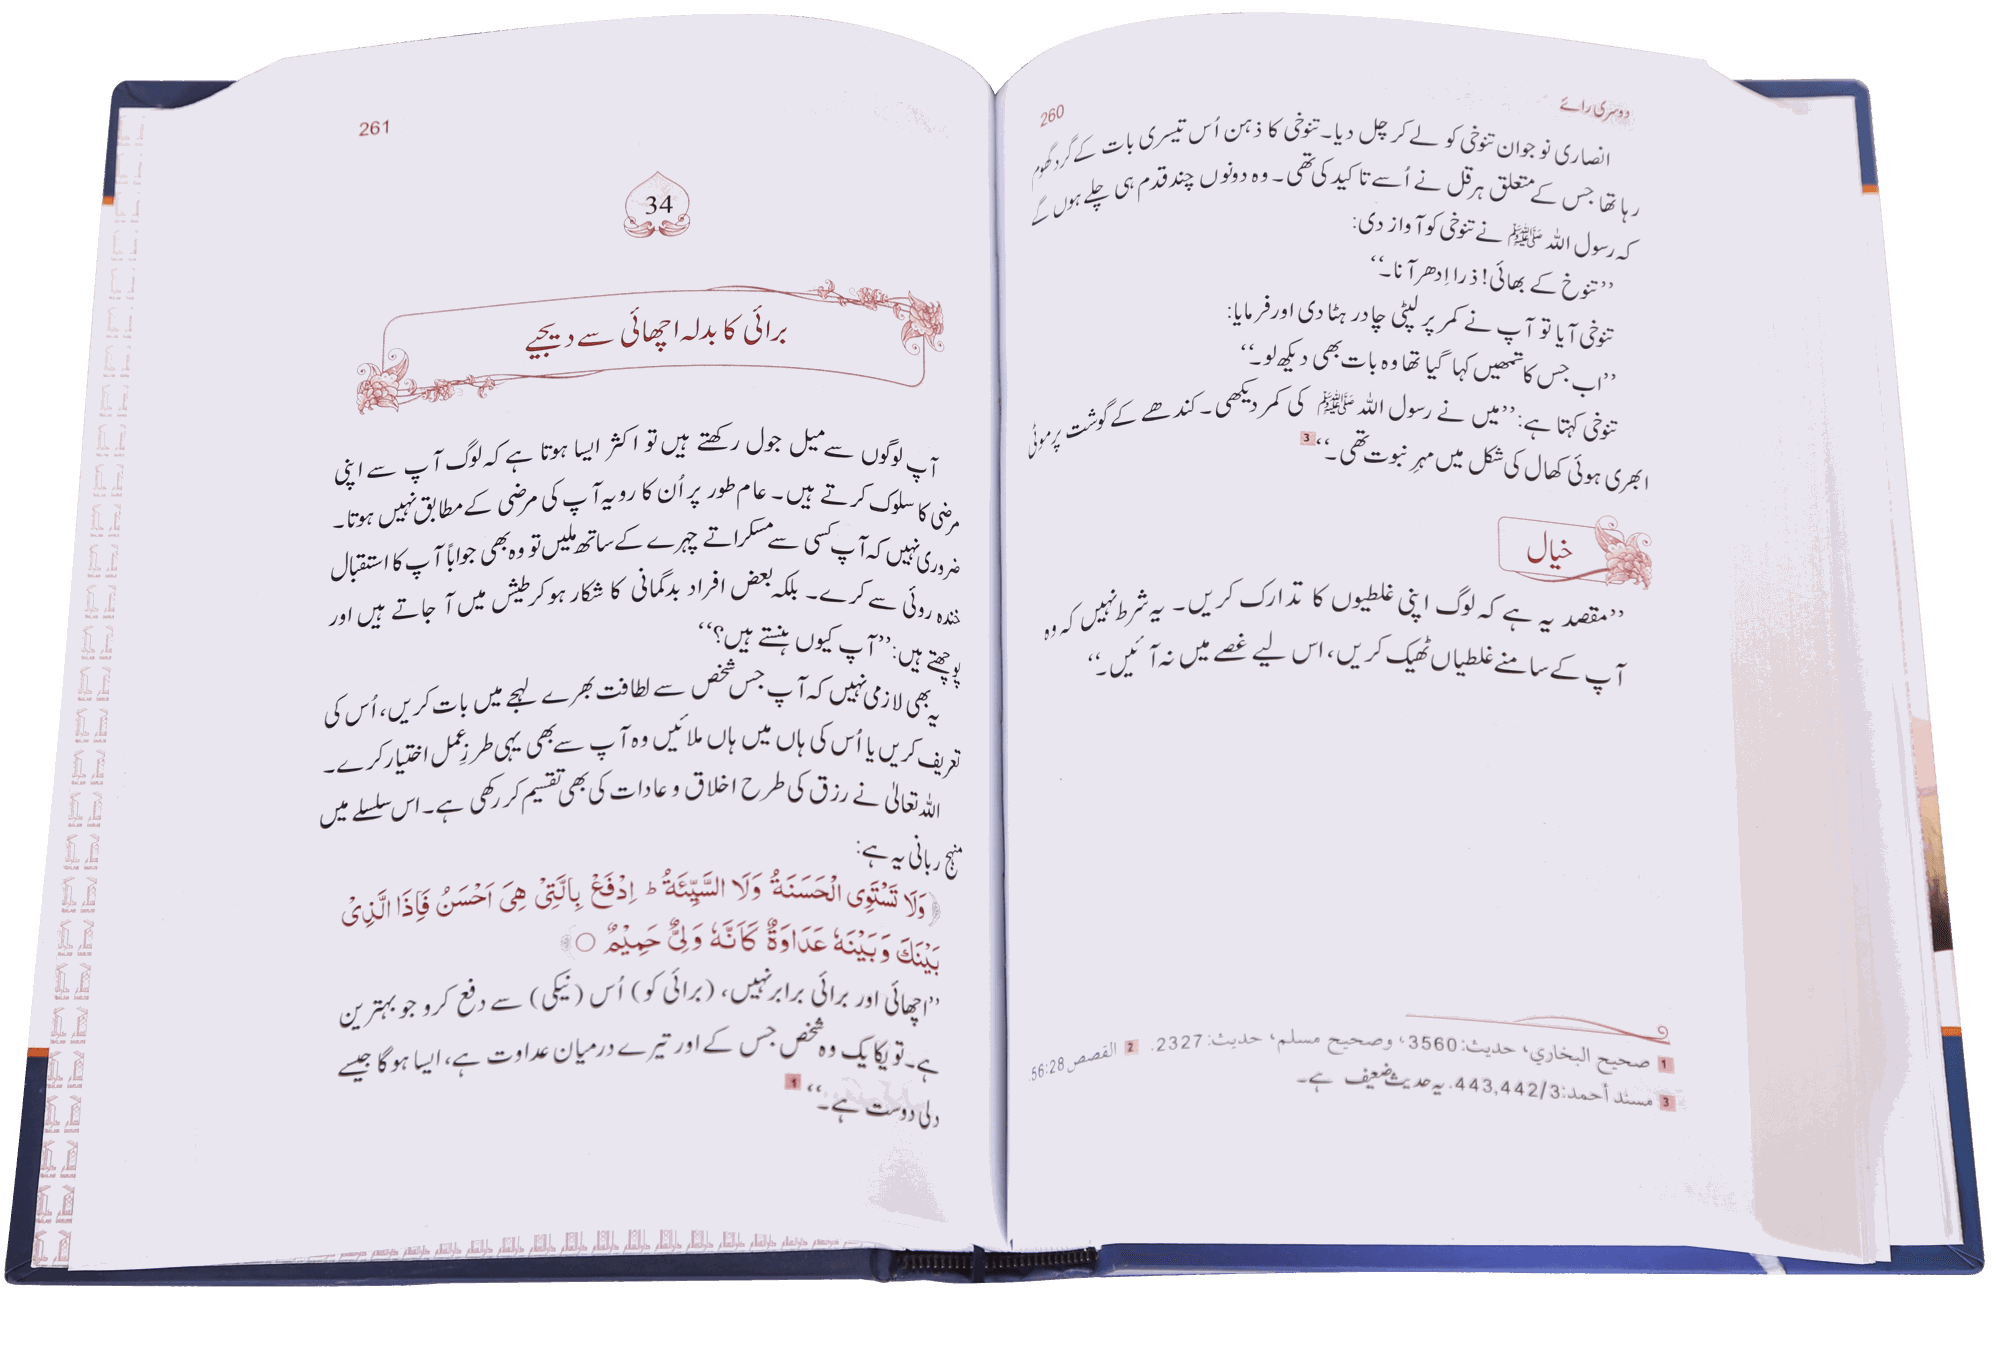 260
دوسری رائے
انصاری نوجوان تنوخی کو لے کر چل دیا۔ تنوخی کا ذہن اُس تیسری بات کے گرد گھوم
رہا تھا جس کے متعلق ہرقل نے اُسے تاکید کی تھی۔ وہ دونوں چند قدم ہی چلے ہوں گے
کہ رسول اللہ ﷺ نے تنوخی کو آواز دی:
’’تنوخ کے بھائی! ذرا اِدھر آنا۔‘‘
تنوخی آیا تو آپ نے کمر پر لپٹی چادر ہٹا دی اور فرمایا:
’’اب جس کا تمھیں کہا گیا تھا وہ بات بھی دیکھ لو۔‘‘
تنوخی کہتا ہے: ’’میں نے رسول اللہ ﷺ کی کمر دیکھی۔ کندھے کے گوشت پر موٹی
ابھری ہوئی کھال کی شکل میں مہرِ نبوت تھی۔‘‘ 3
خیال
’’مقصد یہ ہے کہ لوگ اپنی غلطیوں کا تدارک کریں۔ یہ شرط نہیں کہ وہ
آپ کے سامنے غلطیاں ٹھیک کریں، اس لیے غصے میں نہ آئیں۔‘‘
1 صحيح البخاري، حديث: 3560، وصحيح مسلم، حديث: 2327. 2 القصص 56:28.
3 مسند أحمد: 443,442/3. یہ حدیث ضعیف ہے۔
261
34
برائی کا بدلہ اچھائی سے دیجیے
آپ لوگوں سے میل جول رکھتے ہیں تو اکثر ایسا ہوتا ہے کہ لوگ آپ سے اپنی
مرضی کا سلوک کرتے ہیں۔ عام طور پر اُن کا رویہ آپ کی مرضی کے مطابق نہیں ہوتا۔
ضروری نہیں کہ آپ کسی سے مسکراتے چہرے کے ساتھ ملیں تو وہ بھی جواباً آپ کا استقبال
خندہ روئی سے کرے۔ بلکہ بعض افراد بدگمانی کا شکار ہو کر طیش میں آ جاتے ہیں اور
پوچھتے ہیں: ’’آپ کیوں ہنستے ہیں؟‘‘
یہ بھی لازمی نہیں کہ آپ جس شخص سے لطافت بھرے لہجے میں بات کریں، اُس کی
تعریف کریں یا اُس کی ہاں میں ہاں ملائیں وہ آپ سے بھی یہی طرزِ عمل اختیار کرے۔
اللہ تعالیٰ نے رزق کی طرح اخلاق و عادات کی بھی تقسیم کر رکھی ہے۔ اس سلسلے میں
منہج ربانی یہ ہے:
﴿وَلَا تَسْتَوِی الْحَسَنَةُ وَلَا السَّیِّئَةُ ط اِدْفَعْ بِالَّتِیْ هِیَ اَحْسَنُ فَاِذَا الَّذِیْ
بَیْنَكَ وَبَیْنَهٗ عَدَاوَةٌ كَاَنَّهٗ وَلِیٌّ حَمِیْمٌ ○﴾
’’اچھائی اور برائی برابر نہیں، (برائی کو) اُس (نیکی) سے دفع کرو جو بہترین
ہے۔ تو یکایک وہ شخص جس کے اور تیرے درمیان عداوت ہے، ایسا ہوگا جیسے
دلی دوست ہے۔‘‘ 1